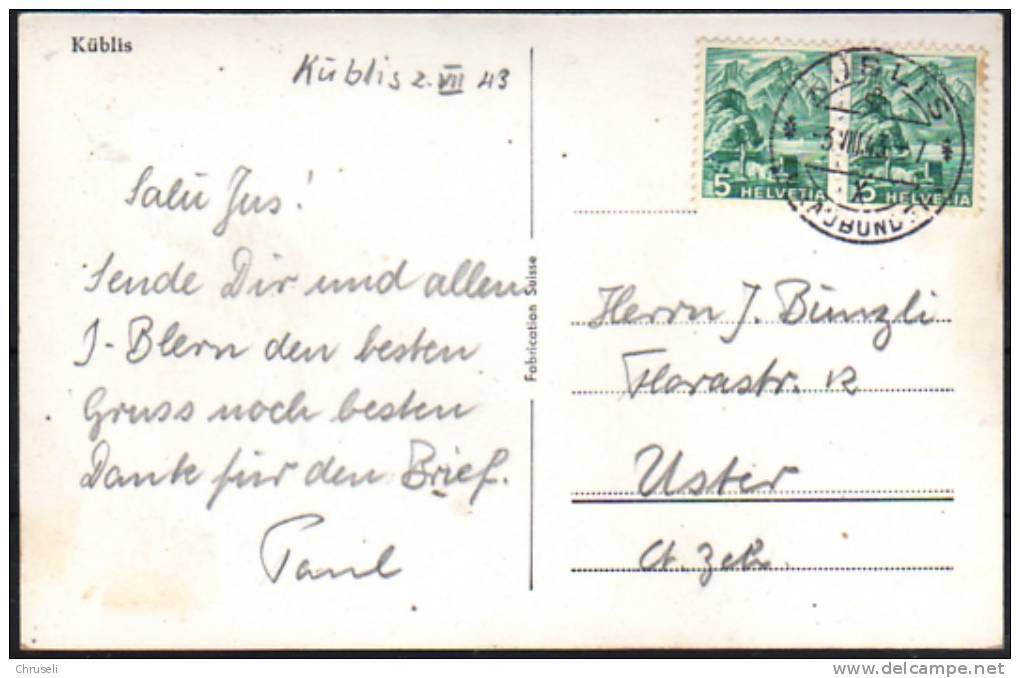 Küblis
Küblis 2. VII 43
Salü Jus!
Sende Dir und allen
J-Blern den besten
Gruss noch besten
Dank für den Brief.
Paul
Fabrication Suisse
5 HELVETIA
5 HELVETIA
KÜBLIS
-3.VIII.43
Herrn J. Bünzli
Florastr. 12
Uster
Ct. Zch.
Chruseli
delcampe.net